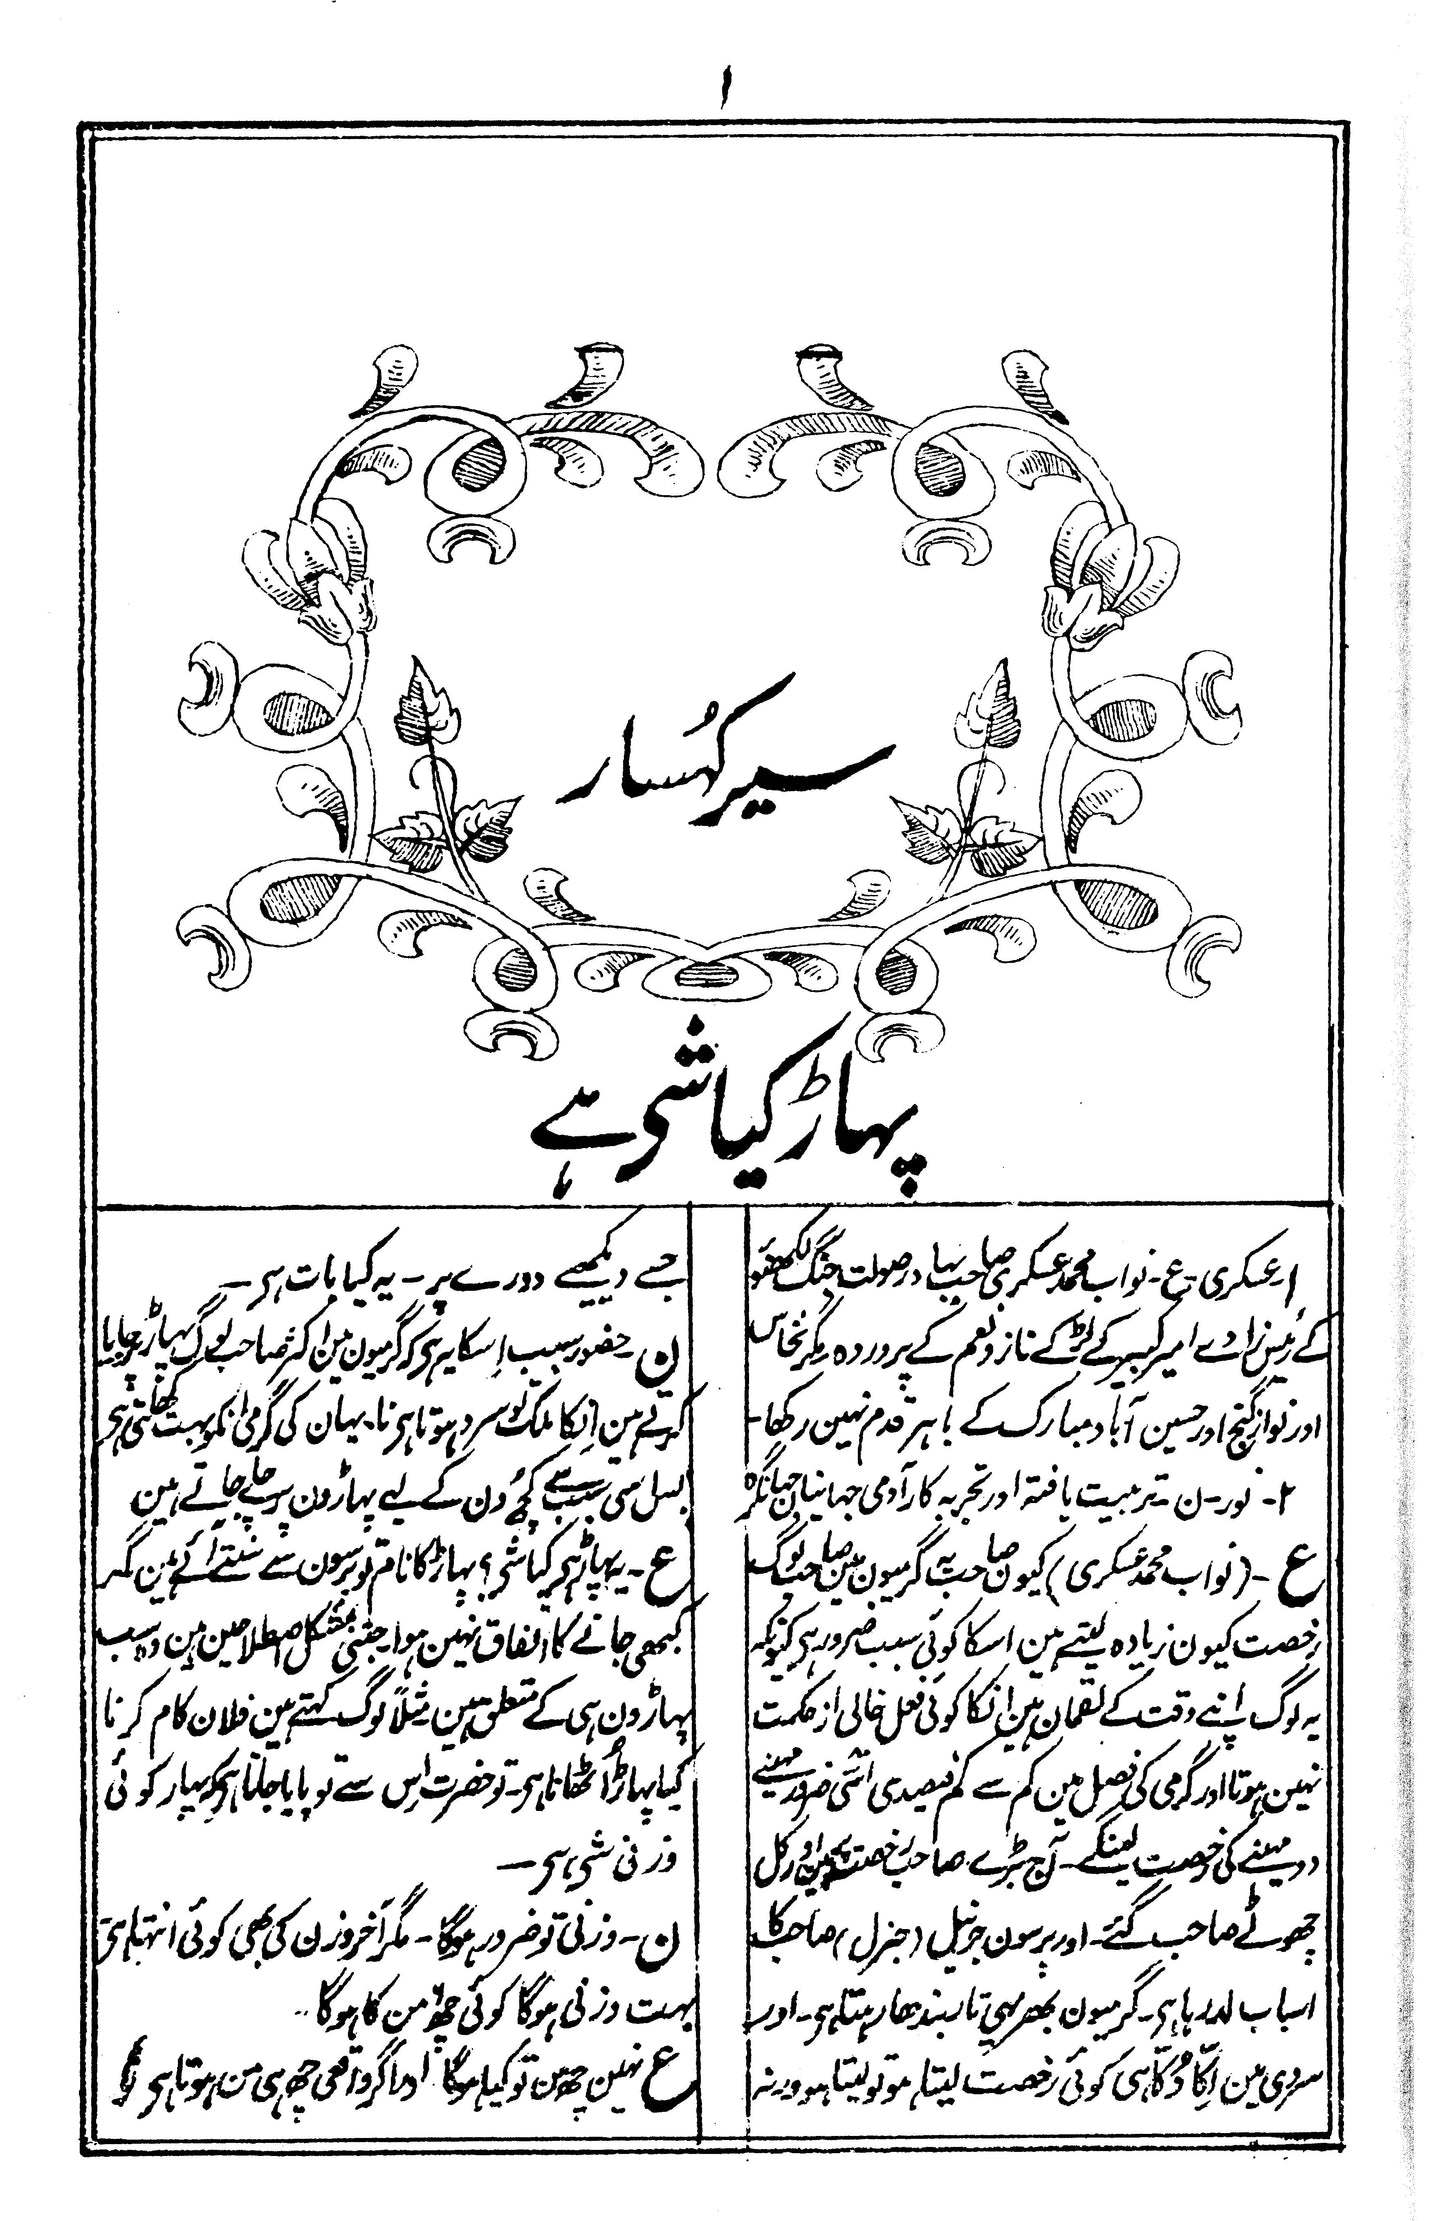 ا
سیر کہُسار
پہاڑ کیا شی ہے
۱۔عسکری۔ع۔نواب محمد عسکری صاحب بہادر صولت جنگ لکھنؤ
کے رئیس زادے امیر کبیر کے لڑکے ناز و نعم کے پروردہ مگر نخاس
اور نواز گنج اور حسین آباد مبارک کے باہر قدم نہین رکھا۔
۲۔ نور۔ن۔تربیت یافتہ اور تجربہ کار آدمی جہانیان جہانگرد
ع ۔(نواب محمد عسکری) کیون صاحب یہ گرمیون مین صاحب لوگ
رخصت کیون زیادہ لیتے ہین اسکا کوئی سبب ضرور ہی کیونکہ
یہ لوگ اپنے وقت کے لقمان ہین انکا کوئی فعل خالی از حکمت
نہین ہوتا اور گرمی کی فصل مین کم سے کم فیصدی اسّی ضرور مہینے
دو مہینے کی رخصت لینگے۔آج بڑے صاحب رخصت پر ہین اور کل
چھوٹے صاحب گئے۔اور پرسون جرنیل (جنرل) صاحب کا
اسباب لد رہا ہی۔گرمیون بھر یہی تار بندھا رہتا ہی۔اور
سردی مین اِکّا دُکّا ہی کوئی رخصت لیتا ہو تو لیتا ہو ورنہ
جسے دیکھیے دورے پر۔یہ کیا بات ہی۔
ن۔حضور سبب اِسکا یہ ہی کہ گرمیون مین اکثر صاحب لوگ پہاڑ پر جایا
کرتے ہین اِنکا ملک تو سرد ہوتا ہی نا۔یہان کی گرمی انکو بہت کھلتی ہی
بس اسی سبب سے کچھ دن کے لیے پہاڑون پر چلے جاتے ہین
ع۔یہ پہاڑ ہی کیا شی؟ پہاڑ کا نام تو برسون سے سنتے آئے ہین مگر
کبھی جانے کا اتفاق نہین ہوا۔جتنی مشکل اصطلاحین ہین وہ سب
پہاڑون ہی کے متعلق ہین مثلاً لوگ کہتے ہین فلان کام کرنا
کیا پہاڑ اُٹھانا ہی۔تو حضرت اِس سے تو پایا جاتا ہی کہ پہاڑ کوئی
وزنی شی ہی۔
ن۔وزنی تو ضرور ہوگا۔مگر آخر وزن کی بھی کوئی انتہا ہی
بہت وزنی ہوگا کوئی چھ من کا ہوگا۔۔
ع نہین چھ من تو کیا ہوگا اور اگر واقعی چھ ہی من ہوتا ہی تو